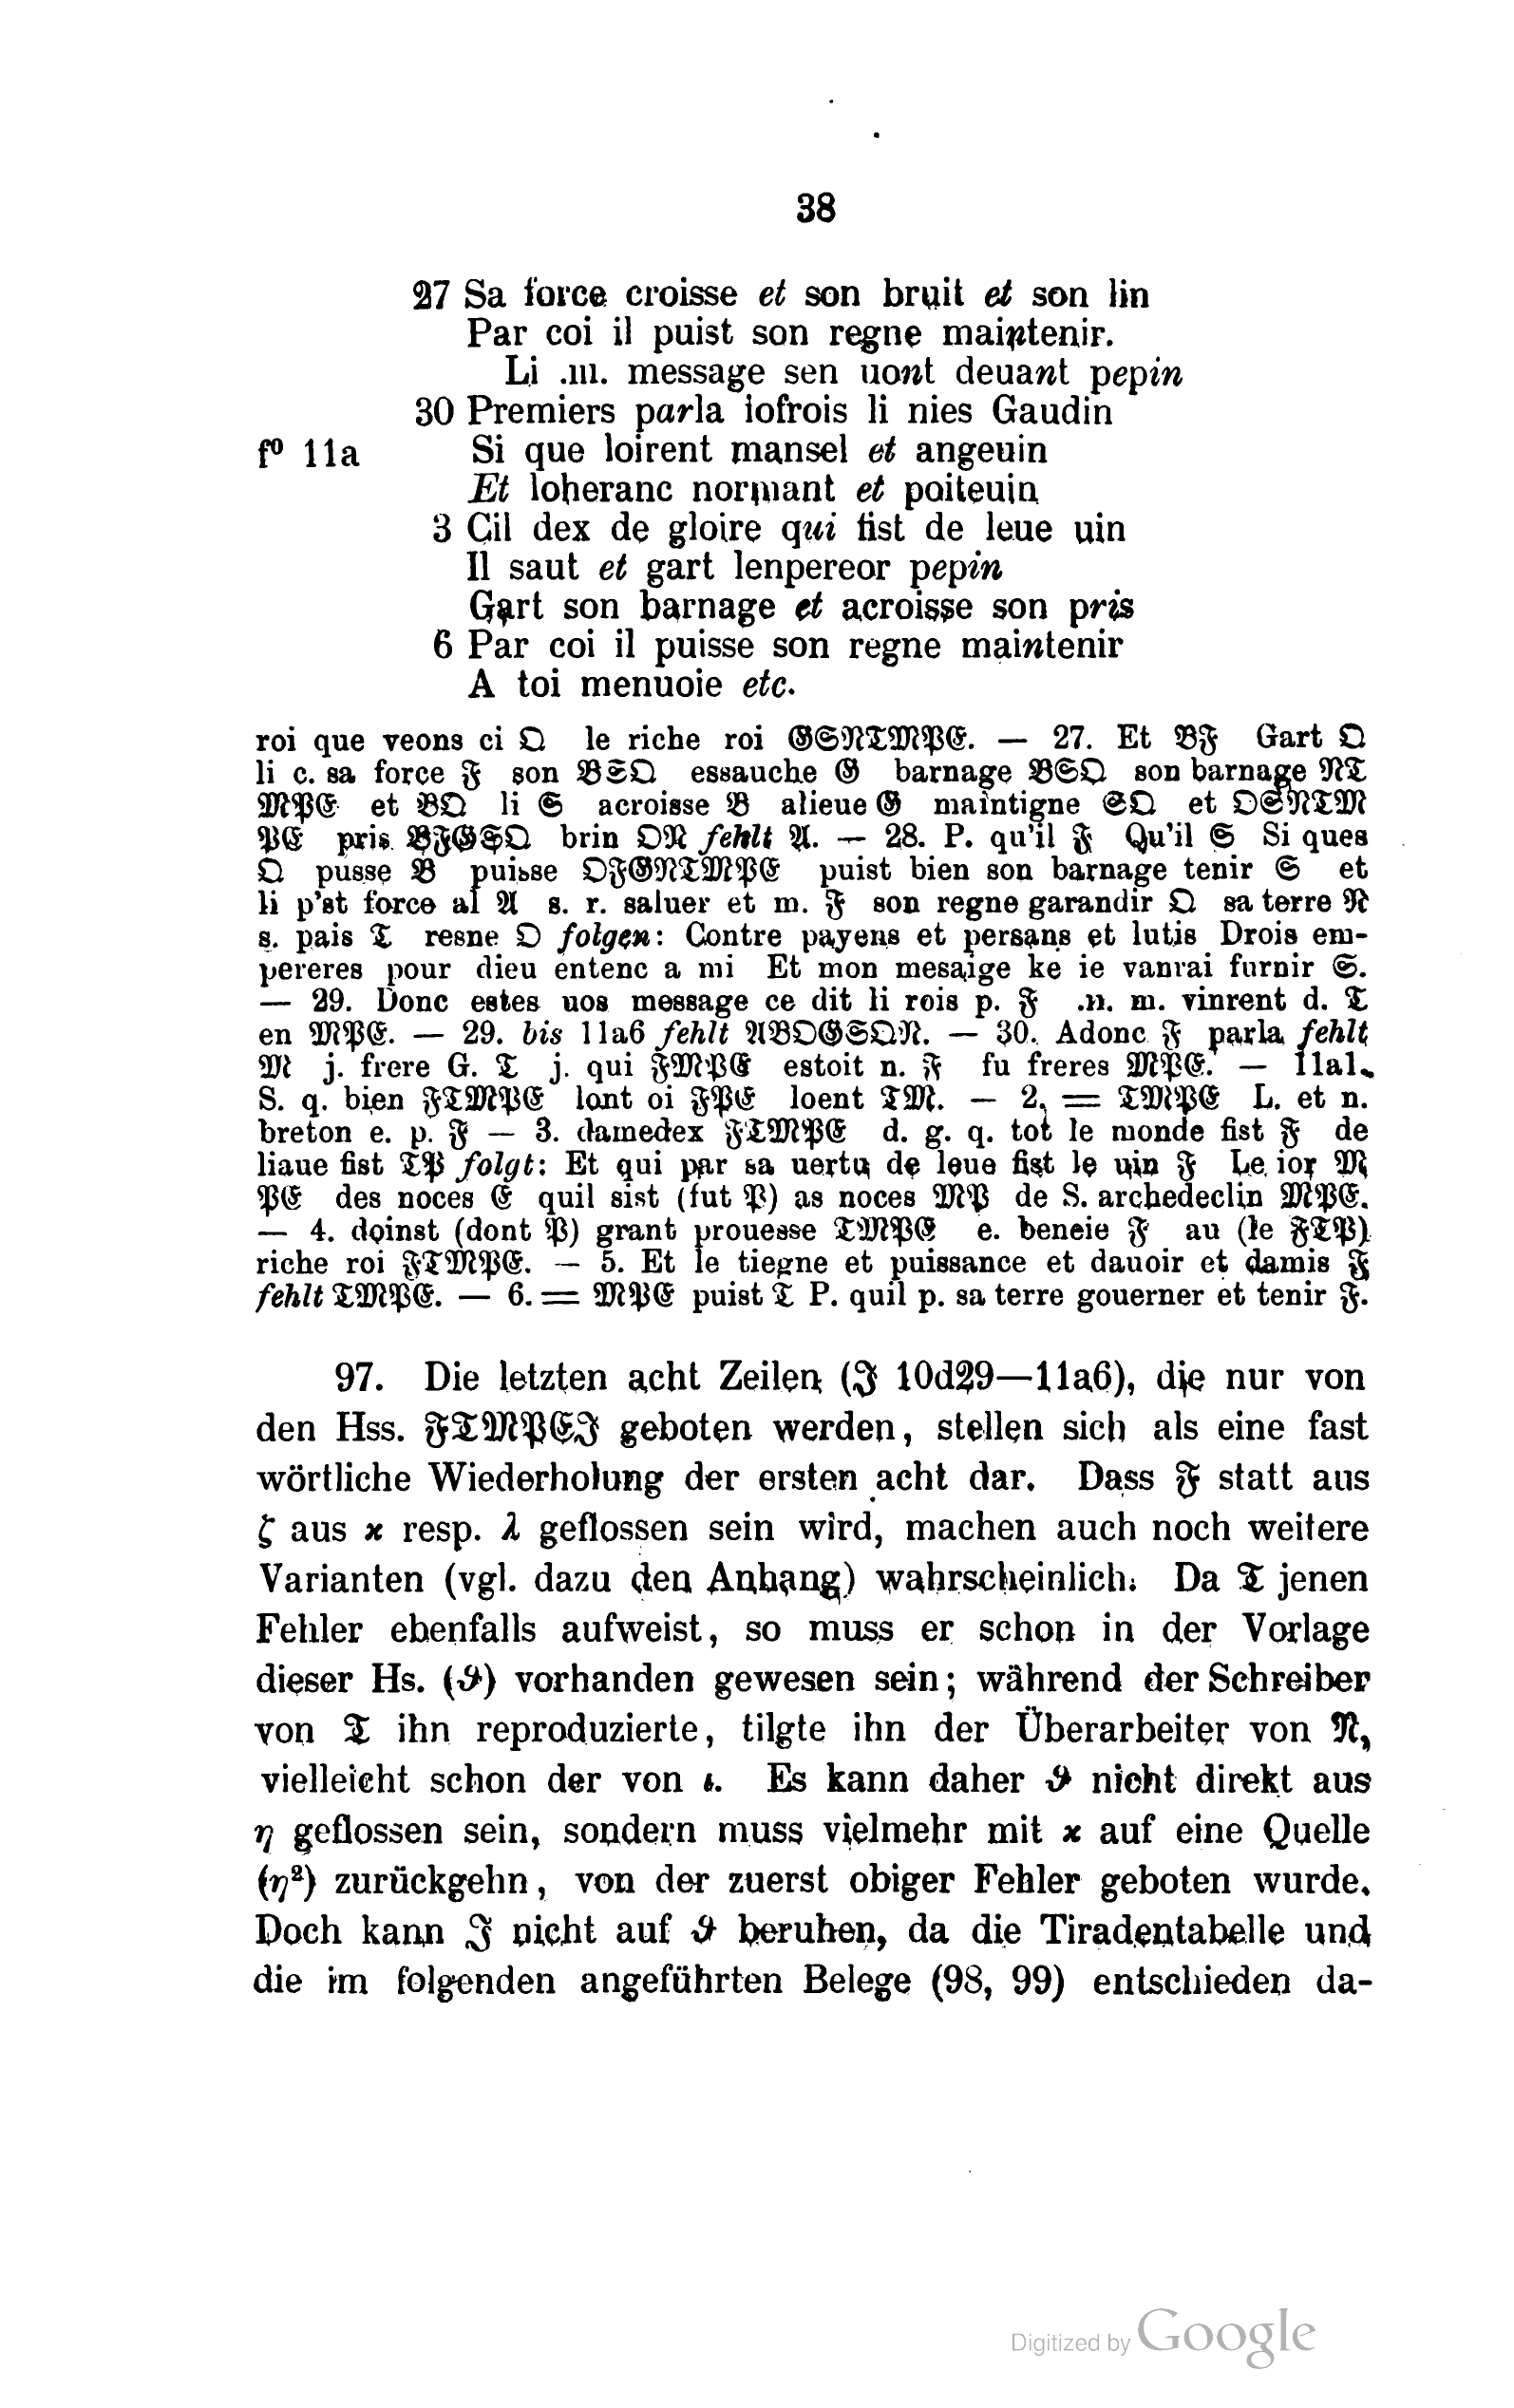 38
27 Sa force croisse et son bruit et son lin
Par coi il puist son regne maintenir.
Li .III. message sen uont deuant pepin
30 Premiers parla iofrois li nies Gaudin
fº 11a Si que loirent mansel et angeuin
Et loheranc normant et poiteuin
3 Cil dex de gloire qui fist de leue uin
Il saut et gart lenpereor pepin
Gart son barnage et acroisse son pris
6 Par coi il puisse son regne maintenir
A toi menuoie etc.
roi que veons ci 𝔔 le riche roi 𝔊𝔖𝔑𝔗𝔐𝔓𝔈. — 27. Et 𝔅𝔉 Gart 𝔔
li c. sa force 𝔉 son 𝔅𝔖𝔔 essauche 𝔊 barnage 𝔅𝔖𝔔 son barnage 𝔑𝔗
𝔐𝔓𝔈 et 𝔅𝔔 li 𝔖 acroisse 𝔅 alieue 𝔊 maintigne 𝔖𝔔 et 𝔇𝔖𝔑𝔗𝔐
𝔓𝔈 pris 𝔅𝔉𝔊𝔖𝔔 brin 𝔇𝔑 fehlt 𝔄. — 28. P. qu'il 𝔉 Qu'il 𝔖 Si ques
𝔔 pusse 𝔅 puisse 𝔇𝔉𝔊𝔑𝔗𝔐𝔓𝔈 puist bien son barnage tenir 𝔖 et
li p'st force al 𝔄 s. r. saluer et m. 𝔉 son regne garandir 𝔔 sa terre 𝔑
s. pais 𝔗 resne 𝔇 folgen: Contre payens et persans et lutis Drois em-
pereres pour dieu entenc a mi Et mon mesaige ke ie vanrai furnir 𝔖.
— 29. Donc estes uos message ce dit li rois p. 𝔉 .II. m. vinrent d. 𝔗
en 𝔐𝔓𝔈. — 29. bis 11a6 fehlt 𝔄𝔅𝔇𝔊𝔖𝔔𝔑. — 30. Adonc 𝔉 parla fehlt
𝔐 j. frere G. 𝔗 j. qui 𝔉𝔐𝔓𝔈 estoit n. 𝔉 fu freres 𝔐𝔓𝔈. — 11a1.
S. q. bien 𝔉𝔗𝔐𝔓𝔈 lont oi 𝔉𝔓𝔈 loent 𝔗𝔐. — 2. = 𝔗𝔐𝔓𝔈 L. et n.
breton e. p. 𝔉 — 3. damedex 𝔉𝔗𝔐𝔓𝔈 d. g. q. tot le monde fist 𝔉 de
liaue fist 𝔗𝔓 folgt: Et qui par sa uertu de leue fist le uin 𝔉 Le ior 𝔐
𝔓𝔈 des noces 𝔈 quil sist (fut 𝔓) as noces 𝔐𝔓 de S. archedeclin 𝔐𝔓𝔈.
— 4. doinst (dont 𝔓) grant prouesse 𝔗𝔐𝔓𝔈 e. beneie 𝔉 au (le 𝔉𝔗𝔓)
riche roi 𝔉𝔗𝔐𝔓𝔈. — 5. Et le tiegne et puissance et dauoir et damis 𝔉
fehlt 𝔗𝔐𝔓𝔈. — 6. = 𝔐𝔓𝔈 puist 𝔗 P. quil p. sa terre gouerner et tenir 𝔉.
97. Die letzten acht Zeilen (ℑ 10d29—11a6), die nur von
den Hss. 𝔉𝔗𝔐𝔓𝔈ℑ geboten werden, stellen sich als eine fast
wörtliche Wiederholung der ersten acht dar. Dass 𝔉 statt aus
ζ aus ϰ resp. λ geflossen sein wird, machen auch noch weitere
Varianten (vgl. dazu den Anhang) wahrscheinlich. Da 𝔗 jenen
Fehler ebenfalls aufweist, so muss er schon in der Vorlage
dieser Hs. (ϑ) vorhanden gewesen sein; während der Schreiber
von 𝔗 ihn reproduzierte, tilgte ihn der Überarbeiter von 𝔑,
vielleicht schon der von ι. Es kann daher ϑ nicht direkt aus
η geflossen sein, sondern muss vielmehr mit ϰ auf eine Quelle
(η²) zurückgehn, von der zuerst obiger Fehler geboten wurde.
Doch kann ℑ nicht auf ϑ beruhen, da die Tiradentabelle und
die im folgenden angeführten Belege (98, 99) entschieden da-
Digitized by Google